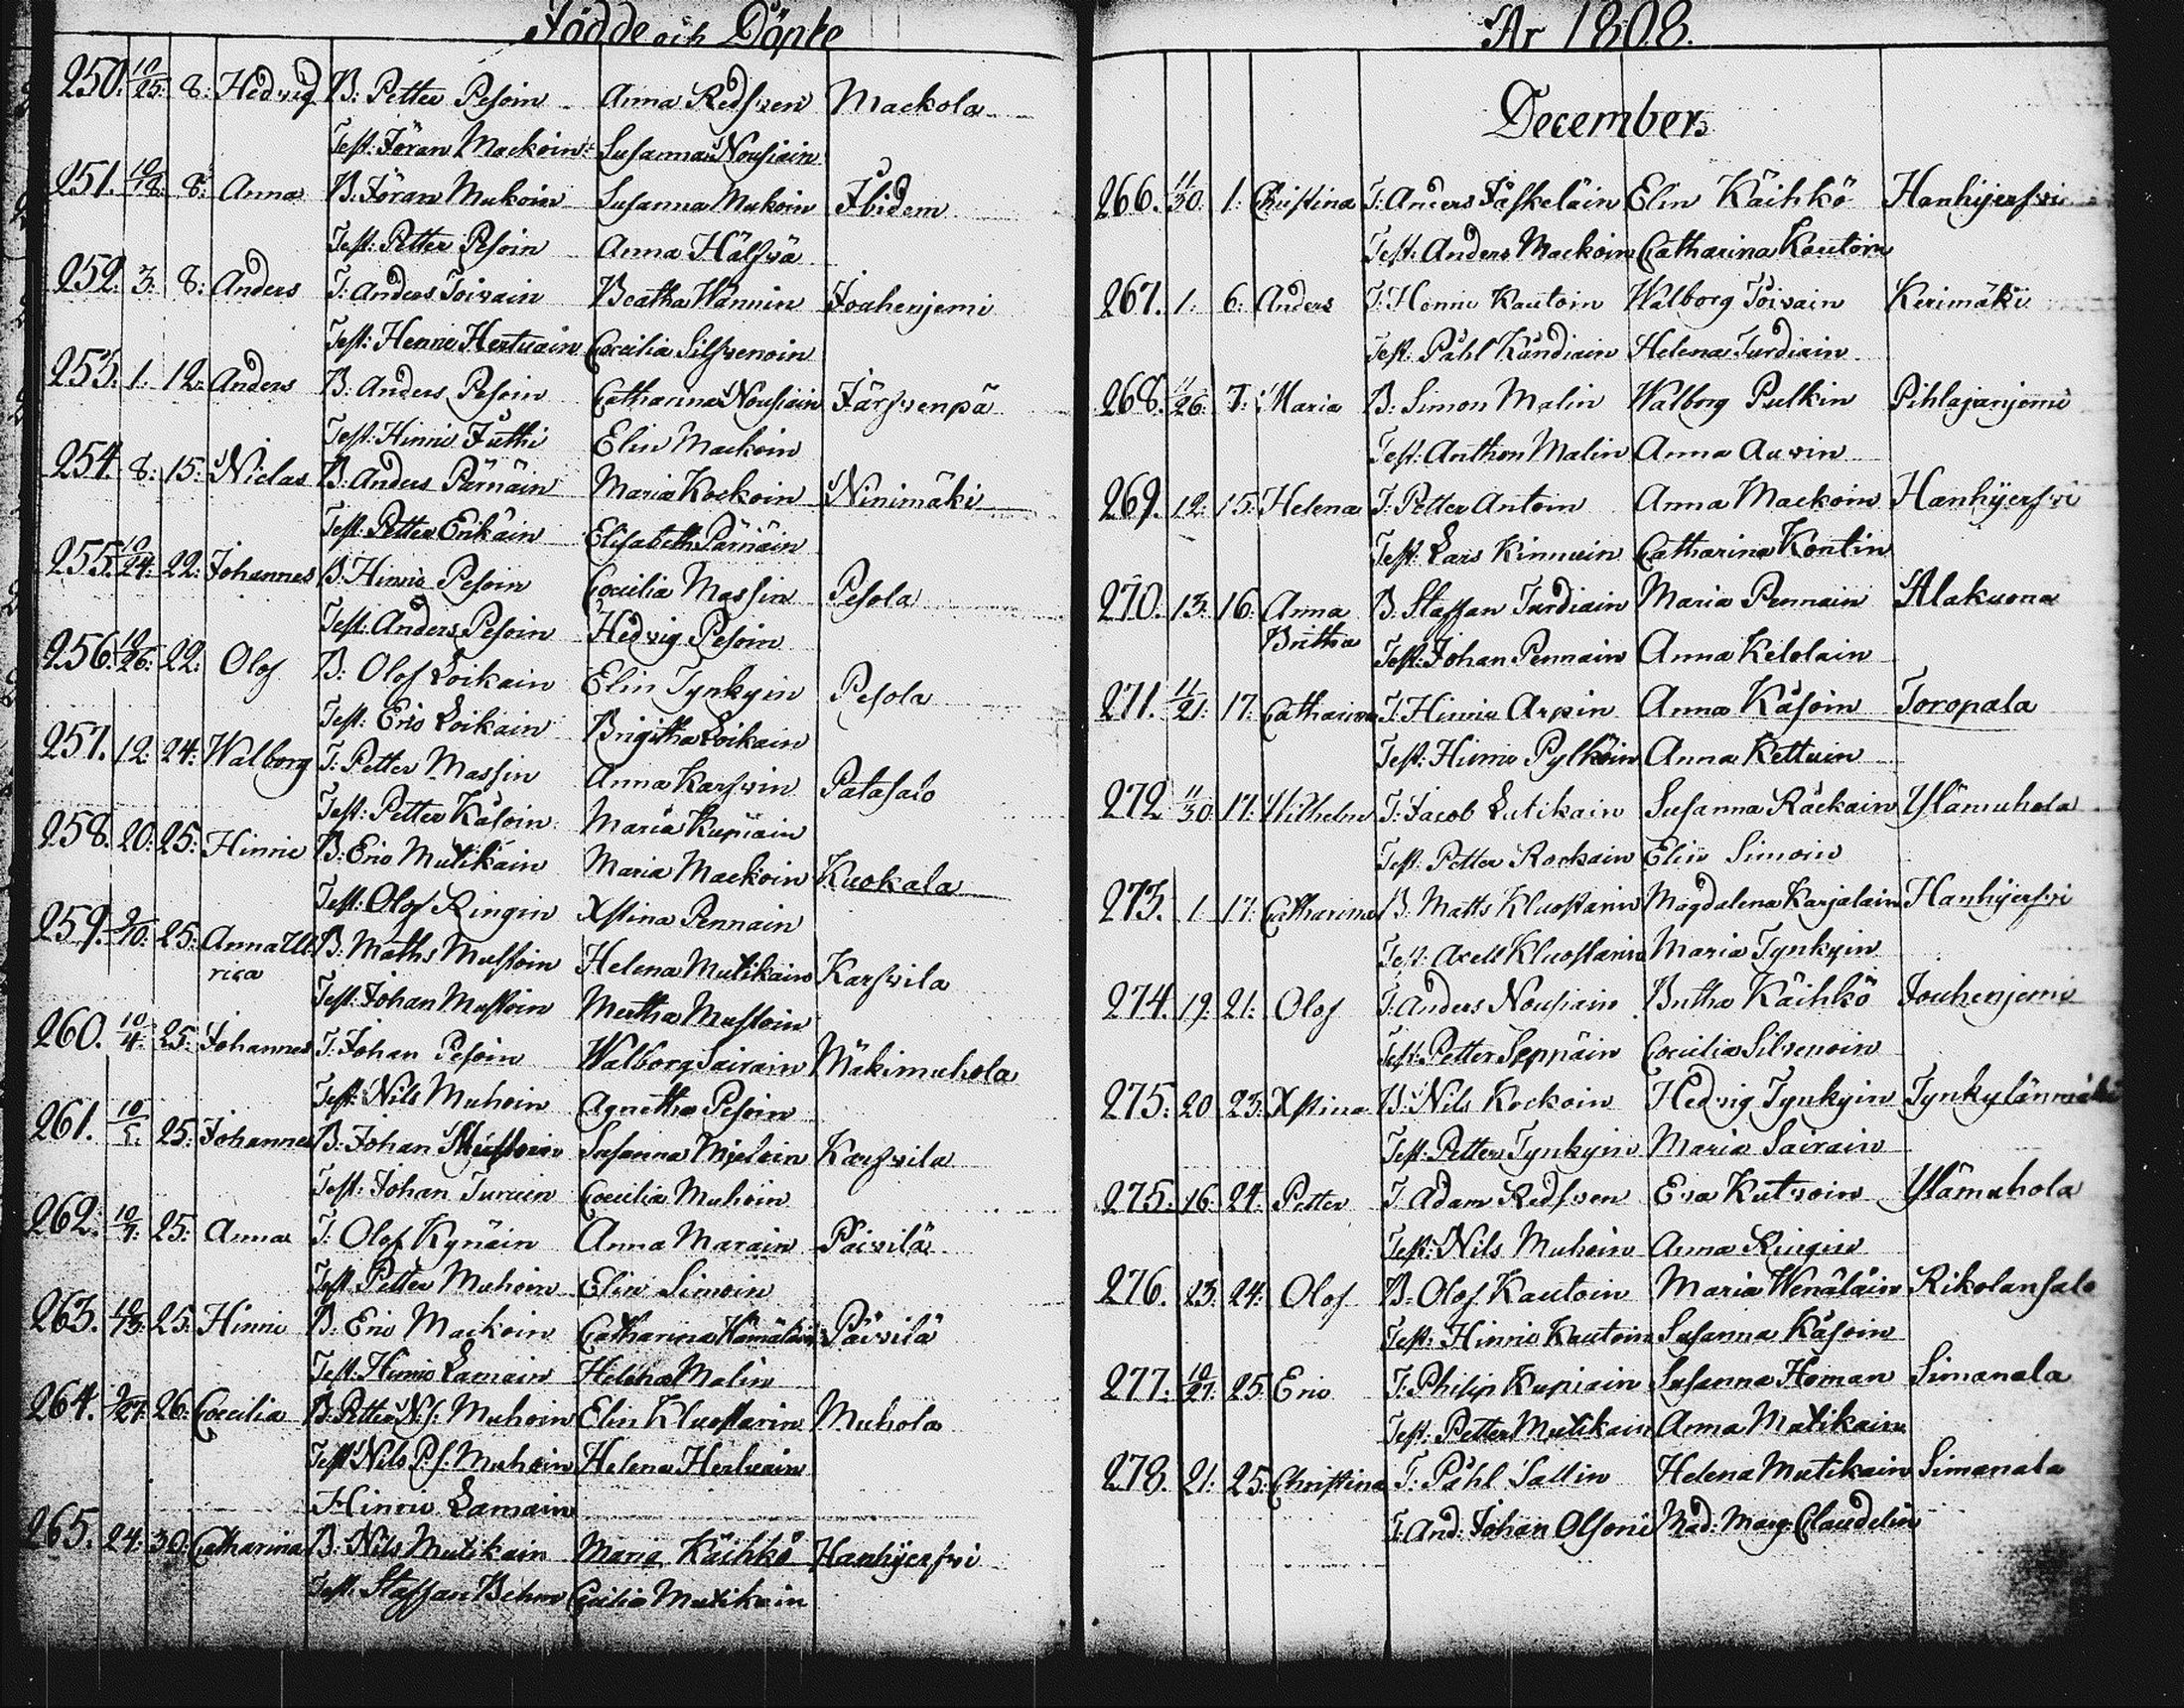 Födde och Döpte
250. 10/25. 8. Hedvig B: Petter Pesoin Anna Redsven Mackola
Test: Jöran Mackoin Susanna Nousiain
251. 10/18. 8. Anna B: Jöran Mukoin Susanna Mukoin Ibidem
Test: Petter Pesoin Anna Hälfvä
252. 3. 8: Anders T: Anders Toivain Beatha Wännin Joahenjemi
Test: Henric Hertuain Cæcilia Silfvenoin
253. 1. 12. Anders B: Anders Pesoin Catharina Nousiain Järfvenpä
Test: Hinric Juthi Elin Mackoin
254. 8. 15: Niclas B: Anders Pärnäin Maria Kockoin Ninimäki
Test: Petter Erikäin Elisabeth Pärnäin
255. 10/24. 22: Johannes B: Hinric Pesoin Cæcilia Massin Pesola
Test: Anders Pesoin Hedvig Pesoin
256. 10/26. 22: Olof B: Olof Loikain Elin Tynkyin Pesola
Test: Eric Loikain Brigitha Loikain
257. 12. 24: Walborg T: Petter Massin Anna Karfvin Patasalo
Test: Petter Käsoin Maria Kupiain
258. 20: 25: Hinric B: Eric Mutikain Maria Mackoin Kuokala
Test: Olof Ringin Xstina Pennain
259. 9/10. 25: Anna Ul B: Maths Mustoin Helena Mutikain Karfvila
rica
Test: Johan Mustoin Mertha Mustoin
260. 10/4. 25: Johannes T: Johan Pesoin Walborg Sairain Mäkimuhola
Test: Nils Muhoin Agnetha Pesoin
261. 10/5. 25: Johannes B: Johan Mustoin Susanna Mieloin Karfvila
Test: Johan Turuin Cæcilia Muhoin
262. 10/7. 25: Anna T: Olof Kynäin Anna Marain Päivilä
Test: Petter Muhoin Elin Simoin
263. 10/13. 25: Hinric B: Eric Mackoin Catharina Hämäläin Päivilä
Test: Hinric Lamain Helena Malin
264. 9/27. 26: Cæcilia B: Petter N:s: Muhoin Elin Kluostarin Muhola
Test: Nils P:s: Muhoin Helena Herluain
Hinric Lamain
265. 24: 30: Catharina B: Nils Mutikain Maria Käihkö Hanhijerfvi
Test: Staffan Behm Cecilia Mutikain
År 1808.
December.
266. 11/30. 1: Christina T: Anders Jäskeläin Elin Käihkö Hanhijerfvi
Test: Anders Mackoin Catharina Kautoin
267. 1. 6: Anders T: Henric Kautoin Walborg Toivain Kerimäki
Test: Påhl Kändiain Helena Turdiain
268. 11/26. 7: Maria B: Simon Malin Walborg Pulkin Pihlajanjemi
Test: Anthon Malin Anna Auvin
269. 12. 15: Helena T: Petter Antoin Anna Mackoin Hanhijerfvi
Test: Lars Kinnuin Catharina Kontin
270. 13. 16: Anna B: Staffan Turdiain Maria Pennain Alakuona
Britha
Test: Johan Pennain Anna Kelolain
271. 11/21. 17: Catharina T: Hinric Arpin Anna Käsoin Toropala
Test: Hinric Pylköin Anna Kettuin
272. 11/30. 17: Wilhelm T: Jacob Lutikain Susanna Räckain Ylämuhola
Test: Petter Rockain Elin Simoin
273. 1. 17: Catharina B: Matts Kluostarin Magdalena Karjalain Hanhijerfvi
Test: Axell Kluostarin Maria Tynkyin
274. 19: 21: Olof T: Anders Nousiain Britha Käihkö Jouhenjemi
Test: Petter Seppäin Cæcilia Silvenoin
275: 20 23: Xstina B: Nils Kockoin Hedvig Tynkyin Tynkylänmäki
Test: Petter Tynkyin Maria Sairain
275: 16: 24: Petter T: Adam Redsven Eva Kutvoin Ylämuhola
Test: Nils Muhoin Anna Ringin
276. 23: 24: Olof B: Olof Kautoin Maria Wenäläin Rikolansalo
Test: Hinric Kautoin Susanna Käsoin
277. 10/27. 25: Eric T: Philip Kupiain Susanna Homan Simanala
Test: Petter Mutikain Anna Mutikain
278. 21: 25: Christina T: Påhl Sallin Helena Mutikain Simanala
T: And: Johan Olsoni Mad: Marg: Claudelin